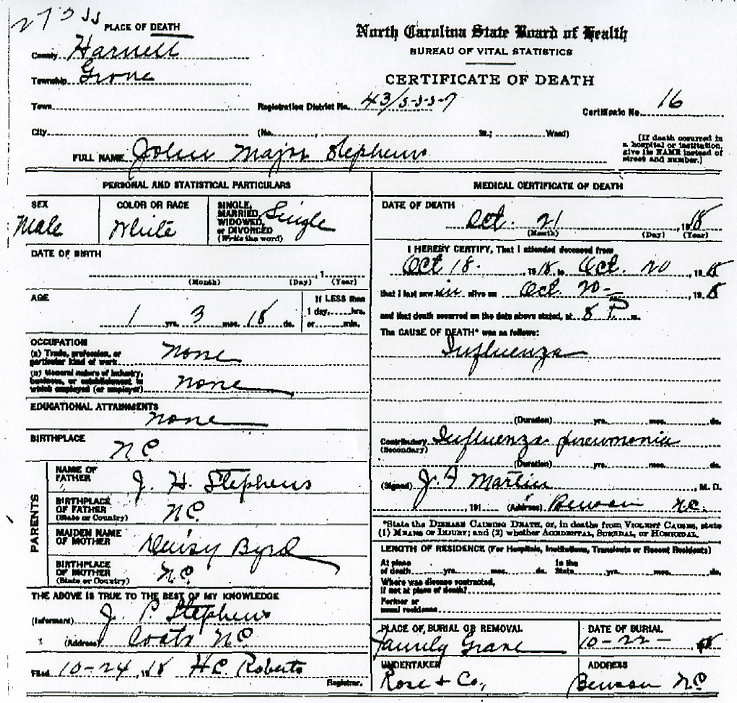 PLACE OF DEATH
North Carolina State Board of Health
BUREAU OF VITAL STATISTICS
CERTIFICATE OF DEATH
County Harnett
Township Grove
Town
Registration District No. 43/5-5-5-7
Certificate No. 16
City (No. , St.; Ward)
FULL NAME John Major Stephens
[If death occurred in a hospital or institution, give its NAME instead of street and number.]
PERSONAL AND STATISTICAL PARTICULARS
SEX Male
COLOR OR RACE White
SINGLE, MARRIED, WIDOWED, or DIVORCED (Write the word) Single
DATE OF BIRTH
, 1
(Month) (Day) (Year)
AGE
1 yrs. 3 mos. 18 ds.
If LESS than 1 day, hrs. or min.
OCCUPATION
(a) Trade, profession, or particular kind of work none
(b) General nature of industry, business, or establishment in which employed (or employer) none
EDUCATIONAL ATTAINMENTS none
BIRTHPLACE N.C.
PARENTS
NAME OF FATHER J. H. Stephens
BIRTHPLACE OF FATHER (State or Country) N.C.
MAIDEN NAME OF MOTHER Daisy Byrd
BIRTHPLACE OF MOTHER (State or Country) N.C.
THE ABOVE IS TRUE TO THE BEST OF MY KNOWLEDGE
(Informant) J. P. Stephens
(Address) Coats NC
Filed 10-24 18 H C Roberts
Registrar.
MEDICAL CERTIFICATE OF DEATH
DATE OF DEATH
Oct. 21 18
(Month) (Day) (Year)
I HEREBY CERTIFY, That I attended deceased from
Oct 18. 1918 to Oct. 20, 1918
that I last saw him alive on Oct 20-, 1918
and that death occurred on the date above stated, at 8 P m.
The CAUSE OF DEATH* was as follows:
Influenza
(Duration) yrs. mos. ds.
Contributory Influenza pneumonia
(Secondary)
(Duration) yrs. mos. ds.
(Signed) J. F Martin, M. D.
, 191 (Address) Benson N.C.
*State the DISEASE CAUSING DEATH, or, in deaths from VIOLENT CAUSES, state
(1) MEANS OF INJURY; and (2) whether ACCIDENTAL, SUICIDAL, OR HOMICIDAL.
LENGTH OF RESIDENCE (For Hospitals, Institutions, Transients or Recent Residents)
At place of death yrs. mos. ds. In the State yrs. mos. ds.
Where was disease contracted,
if not at place of death?
Former or
usual residence
PLACE OF BURIAL OR REMOVAL
Family Grave
DATE OF BURIAL
10-22- 18
UNDERTAKER
Rose & Co,
ADDRESS
Benson N.C.